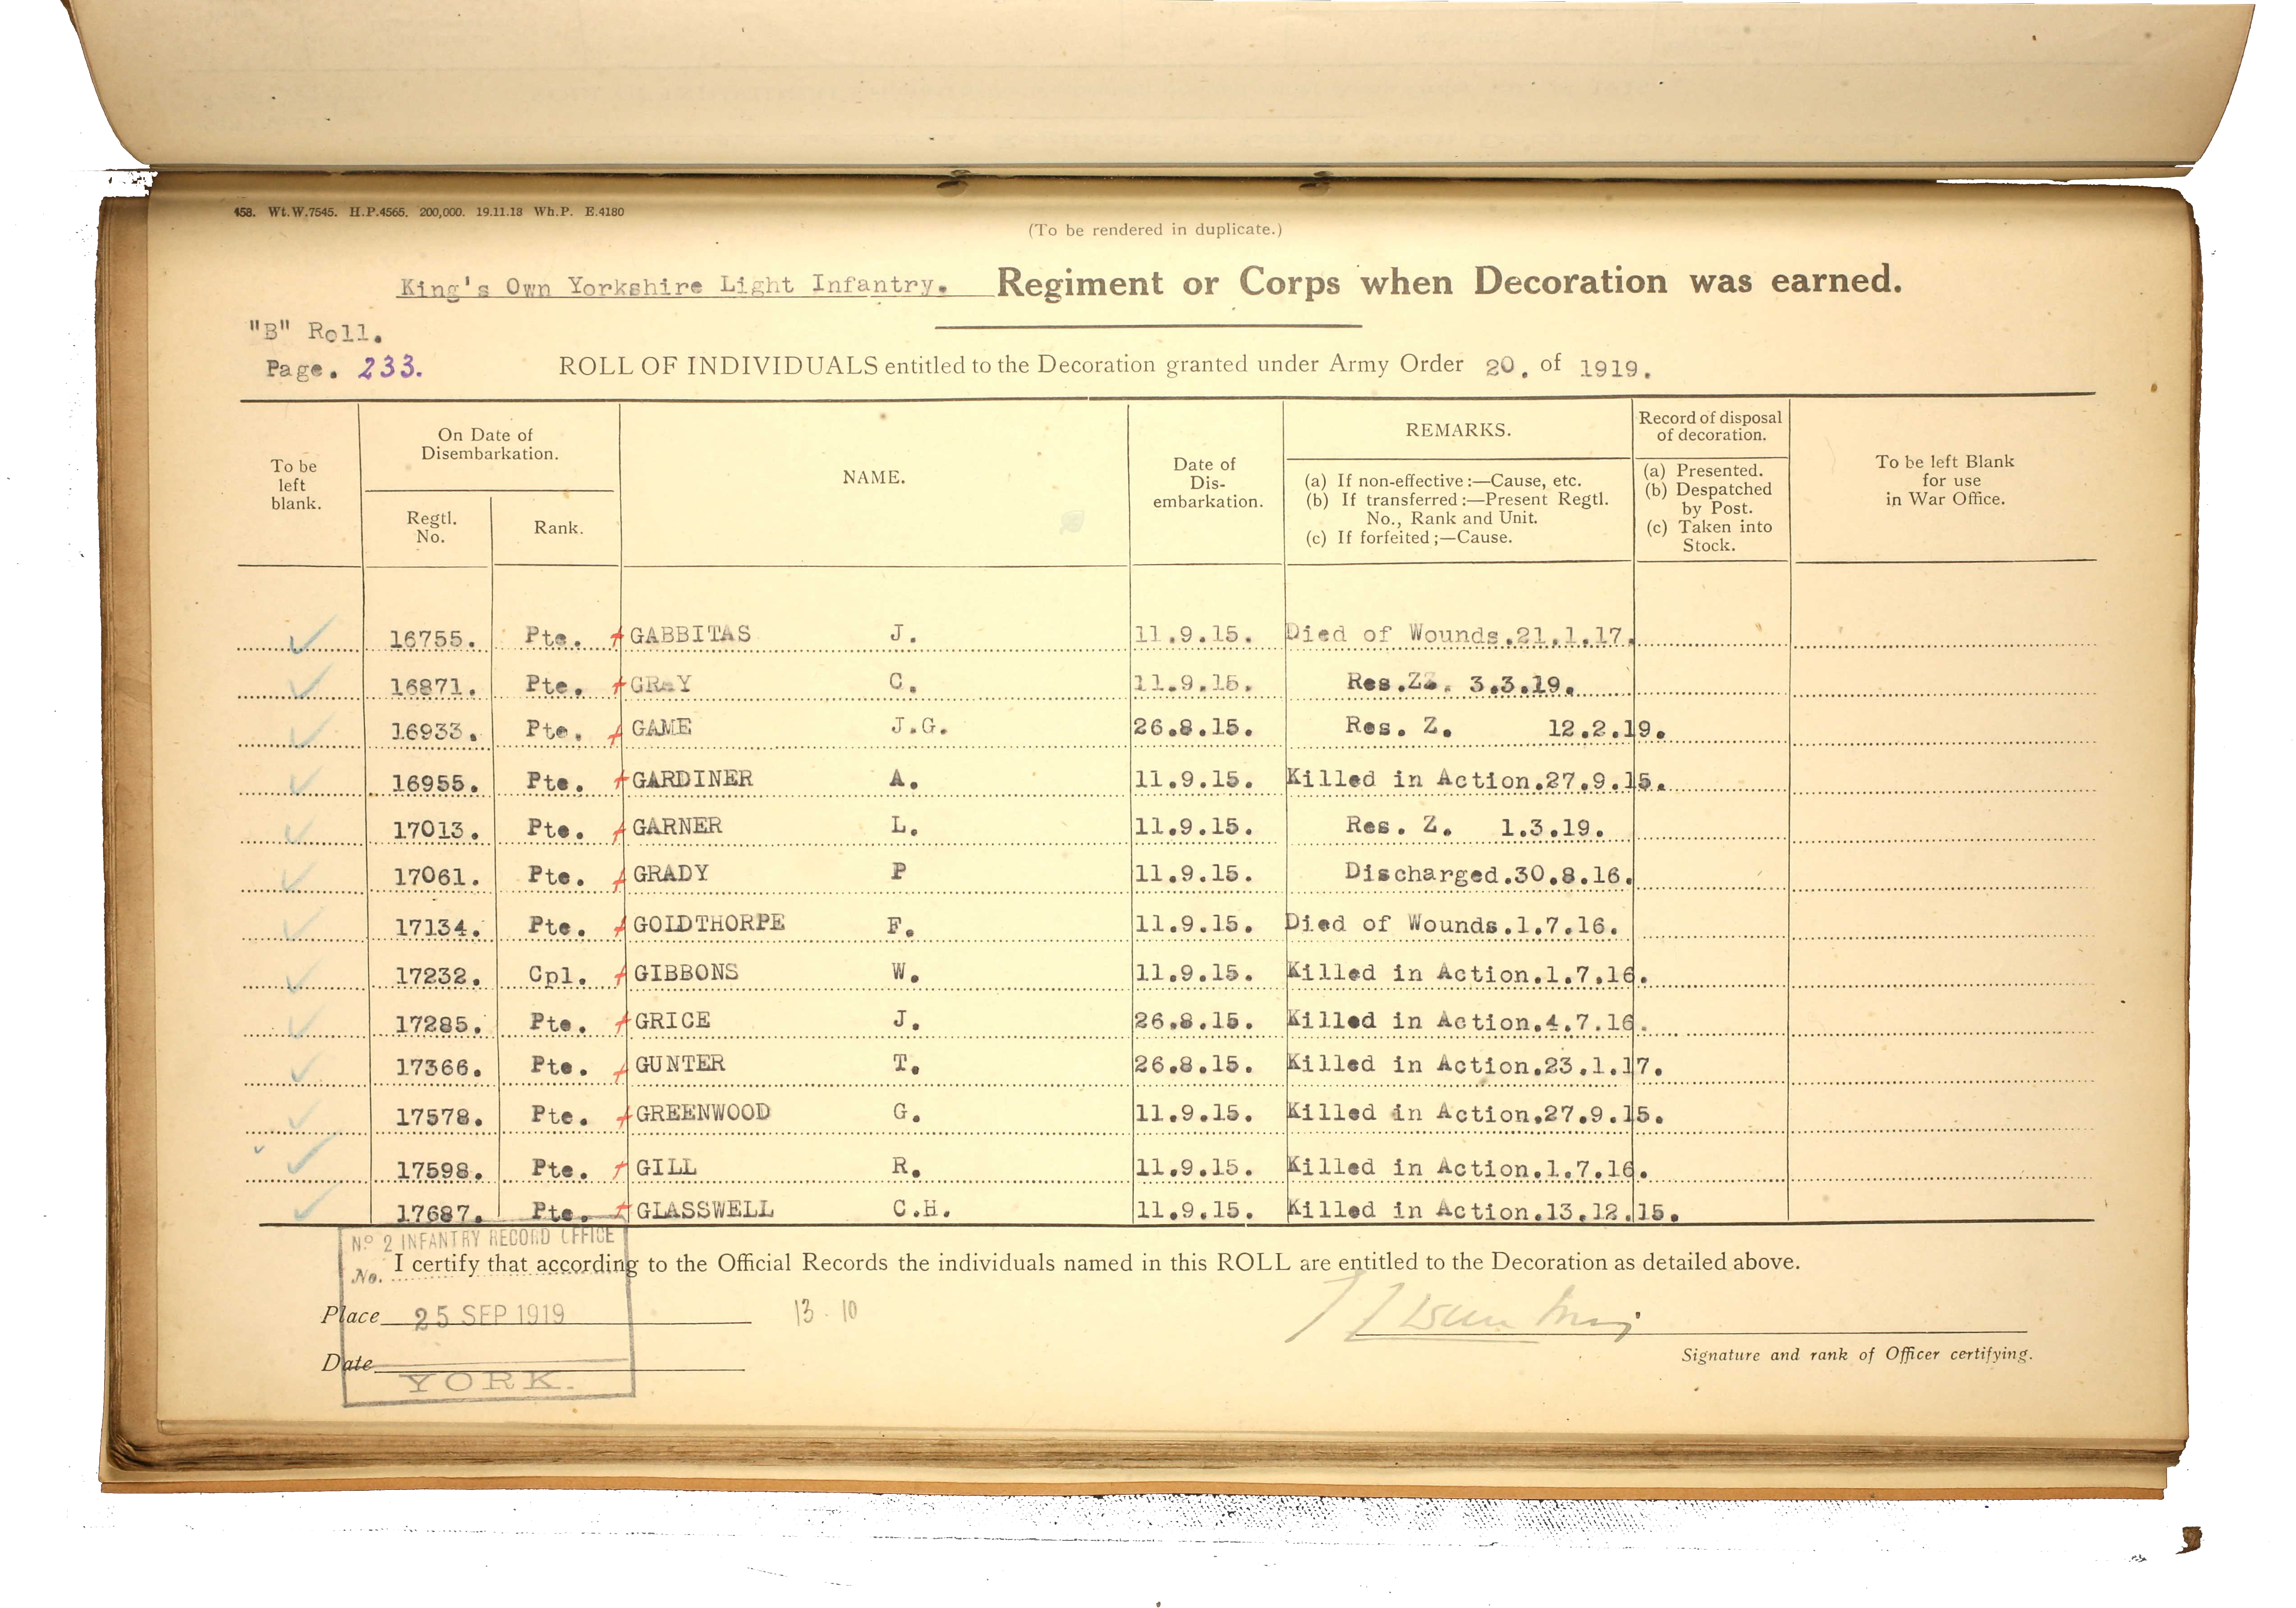 458. Wt.W.7545. H.P.4565. 200,000. 19.11.18 Wh.P. E.4180
(To be rendered in duplicate.)
King's Own Yorkshire Light Infantry. Regiment or Corps when Decoration was earned.
"B" Roll.
Page. 233. ROLL OF INDIVIDUALS entitled to the Decoration granted under Army Order 20. of 1919.
To be left blank.
On Date of Disembarkation.
Regtl. No.
Rank.
NAME.
Date of Dis-embarkation.
REMARKS.
(a) If non-effective:—Cause, etc.
(b) If transferred:—Present Regtl. No., Rank and Unit.
(c) If forfeited;—Cause.
Record of disposal of decoration.
(a) Presented.
(b) Despatched by Post.
(c) Taken into Stock.
To be left Blank for use in War Office.
16755. Pte. GABBITAS J. 11.9.15. Died of Wounds.21.1.17.
16871. Pte. GRAY C. 11.9.15. Res.Z. 3.3.19.
16933. Pte. GAME J.G. 26.8.15. Res. Z. 12.2.19.
16955. Pte. GARDINER A. 11.9.15. Killed in Action.27.9.15.
17013. Pte. GARNER L. 11.9.15. Res. Z. 1.3.19.
17061. Pte. GRADY P 11.9.15. Discharged.30.8.16.
17134. Pte. GOLDTHORPE F. 11.9.15. Died of Wounds.1.7.16.
17232. Cpl. GIBBONS W. 11.9.15. Killed in Action.1.7.16.
17285. Pte. GRICE J. 26.8.15. Killed in Action.4.7.16.
17366. Pte. GUNTER T. 26.8.15. Killed in Action.23.1.17.
17578. Pte. GREENWOOD G. 11.9.15. Killed in Action.27.9.15.
17598. Pte. GILL R. 11.9.15. Killed in Action.1.7.16.
17687. Pte. GLASSWELL C.H. 11.9.15. Killed in Action.13.12.15.
Nº 2 INFANTRY RECORD OFFICE
No.
I certify that according to the Official Records the individuals named in this ROLL are entitled to the Decoration as detailed above.
Place 25 SEP 1919 13.10
Signature and rank of Officer certifying.
Date
YORK.